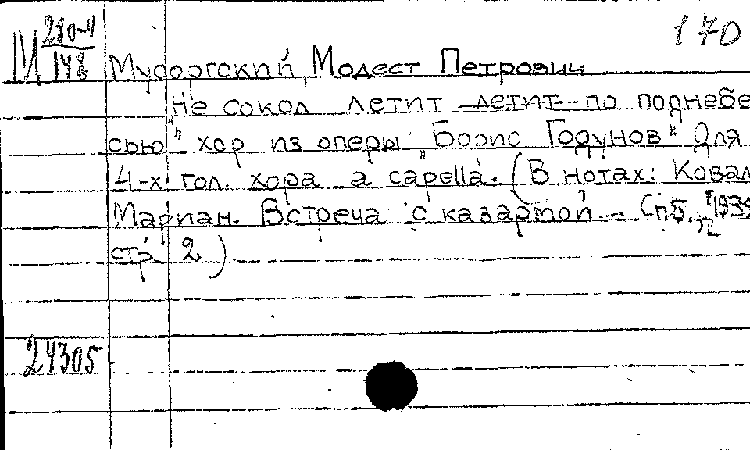 170
М 280-4
148
Мусоргский, Модест Петрович
"Не сокол летит летит по поднебе
сью" хор из оперы "Борис Годунов" для
4-х гол. хора a capella. (В нотах: Ковал
Мариан. Встреча с казартой. -
стр. 2)
24305